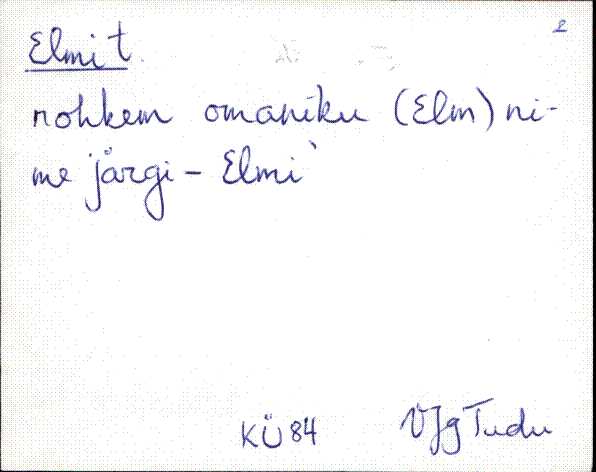 2
Elmit
rohkem omaniku (Elm) ni-
me järgi - Elmi`
KÜ 84 VJg Tudu